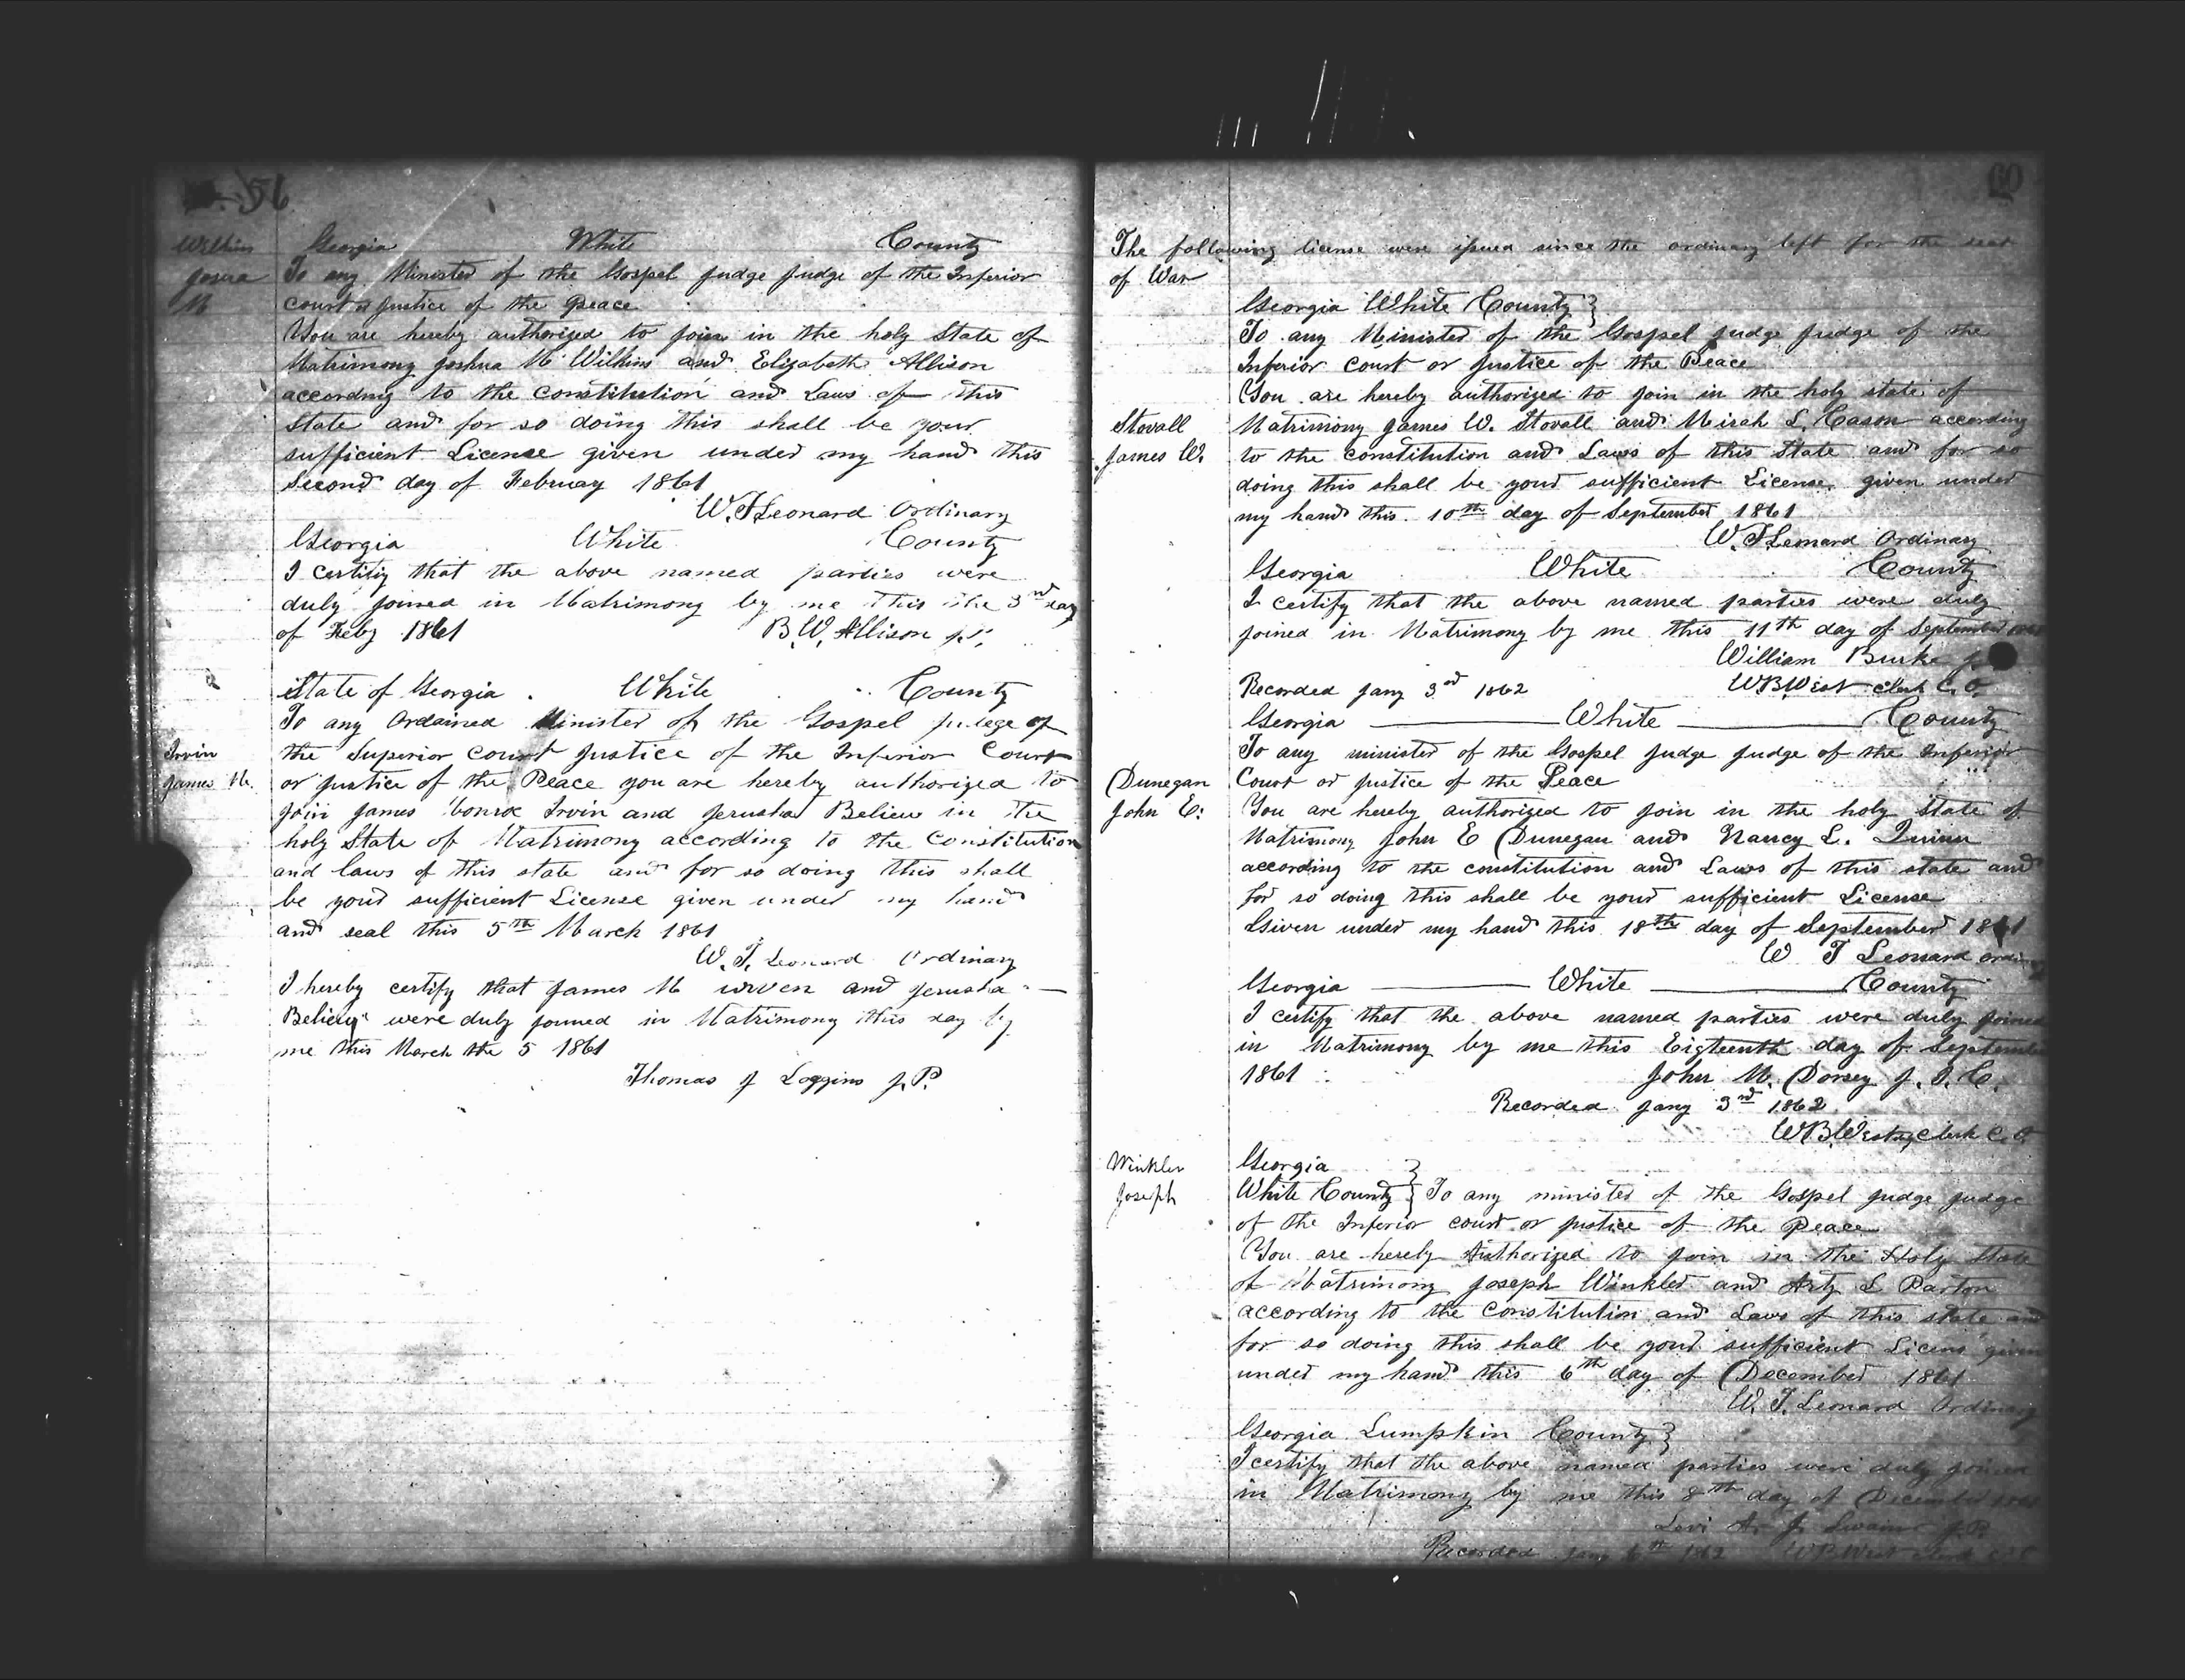 56
Wilkins
Josua
M
Georgia White County
To any Minister of the Gospel Judge Judge of the Inferior
court or Justice of the Peace
You are hereby authorized to join in the holy State of
Matrimony Joshua M Wilkins and Elizabeth Allison
according to the constitution and Laws of this
State and for so doing this shall be your
sufficient License given under my hand this
Second day of February 1861
W. T Leonard Ordinary
Georgia White County
I certify that the above named parties were
duly joined in Matrimony by me this the 3rd day
of Feby 1861 B. W. Allison J.P.
State of Georgia White County
To any Ordained Minister of the Gospel Judge of
Irvin
James M.
the Superior court Justice of the Inferior Court
or Justice of the Peace you are hereby authorized to
join James Monroe Irvin and Jerusha Believ in the
holy State of Matrimony according to the Constitution
and laws of this state and for so doing this shall
be your sufficient License given under my hand
and seal this 5th March 1861
W. T. Leonard Ordinary
I hereby certify that James M and Jerusha
were duly joined in Matrimony this day by
me this March the 5 1861
Thomas J Loggins J. P.
60
The following license were issued since the ordinary left for the seat
of War
Georgia White County
To any Minister of the Gospel Judge Judge of the
Inferior Court or Justice of the Peace
You are hereby authorized to join in the holy state of
Stovall
James W.
Matrimony James W. Stovall and L. Cason according
to the constitution and Laws of this State and for so
doing this shall be your sufficient License given under
my hand this 10th day of September 1861
W. T Leonard Ordinary
Georgia White County
I certify that the above named parties were duly
joined in Matrimony by me this 11th day of September
William Burke J
Recorded Jany 3rd 1862 W B West clerk C. O.
Georgia White County
To any minister of the Gospel Judge Judge of the Inferior
Dunegan
John E.
Court or Justice of the Peace
You are hereby authorized to join in the holy State of
Matrimony John E Dunegan and Nancy L. Quinn
according to the constitution and Laws of this state and
for so doing this shall be your sufficient License
Given under my hand this 18th day of September 1861
W T Leonard
Georgia White County
I certify that the above named parties were duly joined
in Matrimony by me this Eigteenth day of September
1861 John M. Dorsey J. I. C.
Recorded Jany 3rd 1862
W B West Clerk C. O
Winkler
Joseph
Georgia
White County To any minister of the Gospel Judge Judge
of the Inferior court or Justice of the Peace
You are hereby Authorized to join in the Holy State
of Matrimony Joseph Winkler and Arty L Parton
according to the Constitution and Laws of this state and
for so doing this shall be your sufficient Licens given
under my hand this 6th day of December 1861
W. T. Leonard Ordinary
Georgia Lumpkin County
I certify that the above named parties were duly
in Matrimony by me this 8th day of December
Levi Swain J.P.
Recorded Jany 6th 1862 W B West clerk